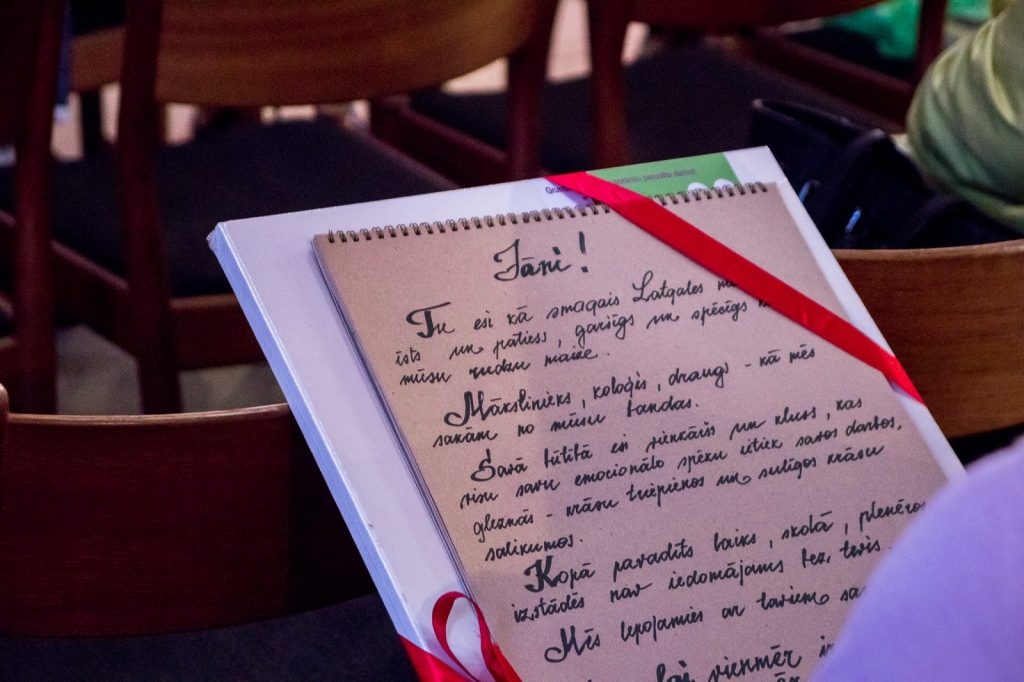 Jāni!
Tu esi kā smagais Latgales
īsts un patiess, garšīgs un spēcīgs
mūsu rudzu maize.
Mākslinieks, koloģis, draugs - kā mēs
sakām no mūsu bandas.
Savā būtībā esi vienkāršs un kluss, kas
visu savu emocionālo spēku ieliek savos darbos,
gleznās - krāsu triepienos un sulīgos krāsu
salikumos.
Kopā pavadīts laiks, skolā, plenēros
izstādēs nav iedomājams bez tevis.
Mēs lepojamies ar taviem
lai vienmēr